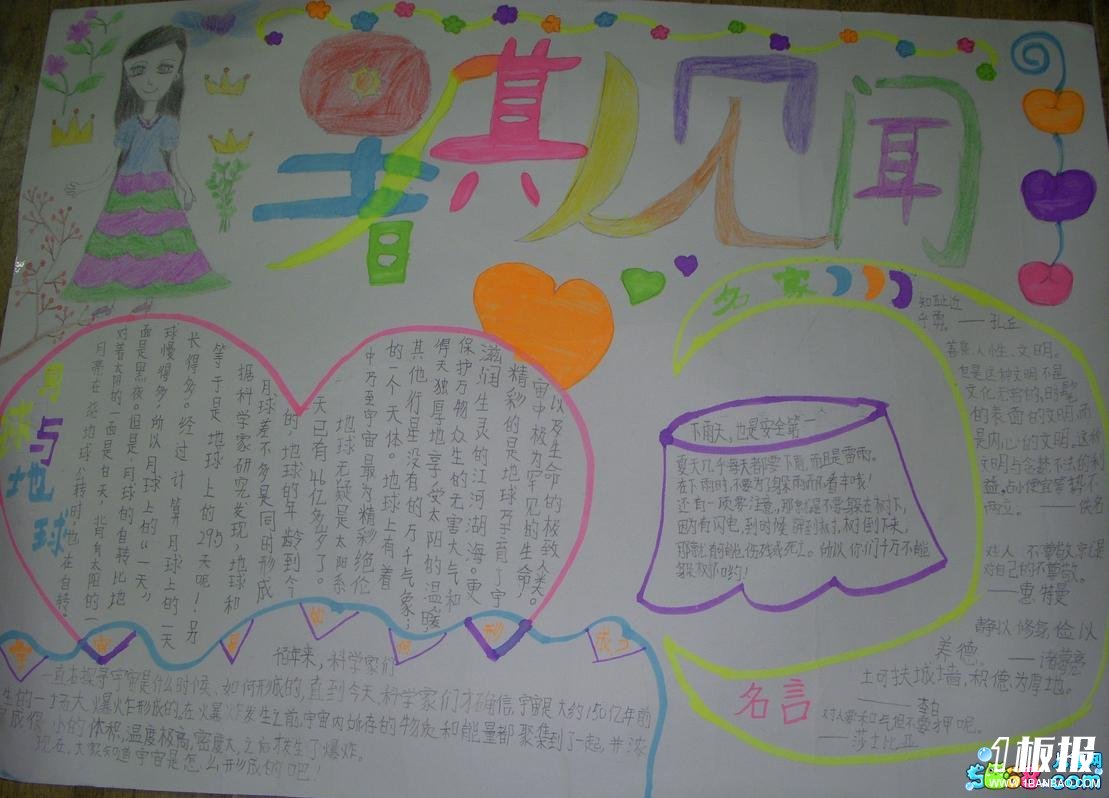 暑期见闻
月球与地球
月亮在绕地球公转时，也在自转
对着太阳的一面是白天，背着太阳的一
面是黑夜。但是，月球的自转比地
球慢得多，所以月球上的“一天”
长得多。经过计算月球上的一天
等于是地球上的29.5天呢！另
据科学家研究发现，地球和
月球差不多是同时形成
的，地球的年龄到今
天已有46亿多岁了。
地球无疑是太阳系
中乃至宇宙最为精彩绝伦
的一个天体。地球上有着
其他行星没有的万千气象；
得天独厚地享受太阳的温暖
保护万物众生的无害大气和
滋润生灵的江河湖海。更
精彩的是地球孕育了宇
宙中极为罕见的生命，
以及生命的极致人类。
宇宙是如何形成
科学家们
一直在探寻宇宙是什么时候、如何形成的，直到今天，科学家们才确信，宇宙是大约150亿年前
生的一场大爆炸形成的。在爆炸发生之前，宇宙内所存的物质和能量都聚集到了一起，并浓
缩成很小的体积，温度极高，密度大，之后发生了爆炸。
现在，大家知道宇宙是怎么形成的吧！
下雨天，也是安全第一
夏天几乎每天都要下雨，而且是雷雨。
在下雨时，不要为了躲雨而不看车哦！
还有一项要注意，那就是不要躲在树下，
因为有闪电，到时候劈到树，树倒下来，
那就有可能伤残或死亡。所以你们千万不能
躲树下哟！
名家
知耻近
乎勇。——孔丘
善良、人性、文明。
也是这种文明不是
文化无穷的，时髦
的表面的文明，而
是内心的文明。这种
文明与贪赃不法的利
益，占小便宜等势不
两立。——佚名
对人不尊敬，就是
对自己的不尊敬。
——惠特曼
静以修身，俭以
养德。——诸葛亮
土可扶城墙，积德为厚地。
——李白
对人要和气，但不要狎昵。
——莎士比亚
名言
1板报
WWW.1BANBAO.COM